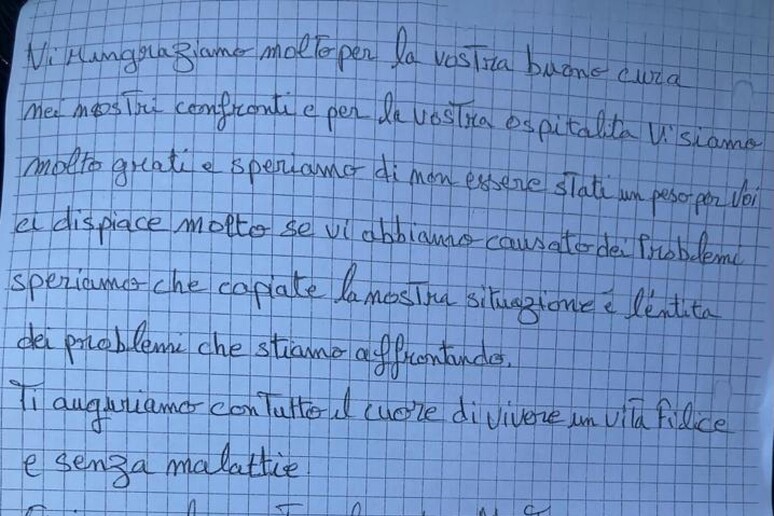 Vi ringraziamo molto per la vostra buona cura
nei nostri confronti e per la vostra ospitalita Vi siamo
molto grati e speriamo di non essere stati un peso per Voi
ci dispiace molto se vi abbiamo causato dei problemi
speriamo che capiate la nostra situazione é l'entita
dei problemi che stiamo affrontando.
Ti auguriamo con Tutto il cuore di vivere un vita filice
e senza malattie